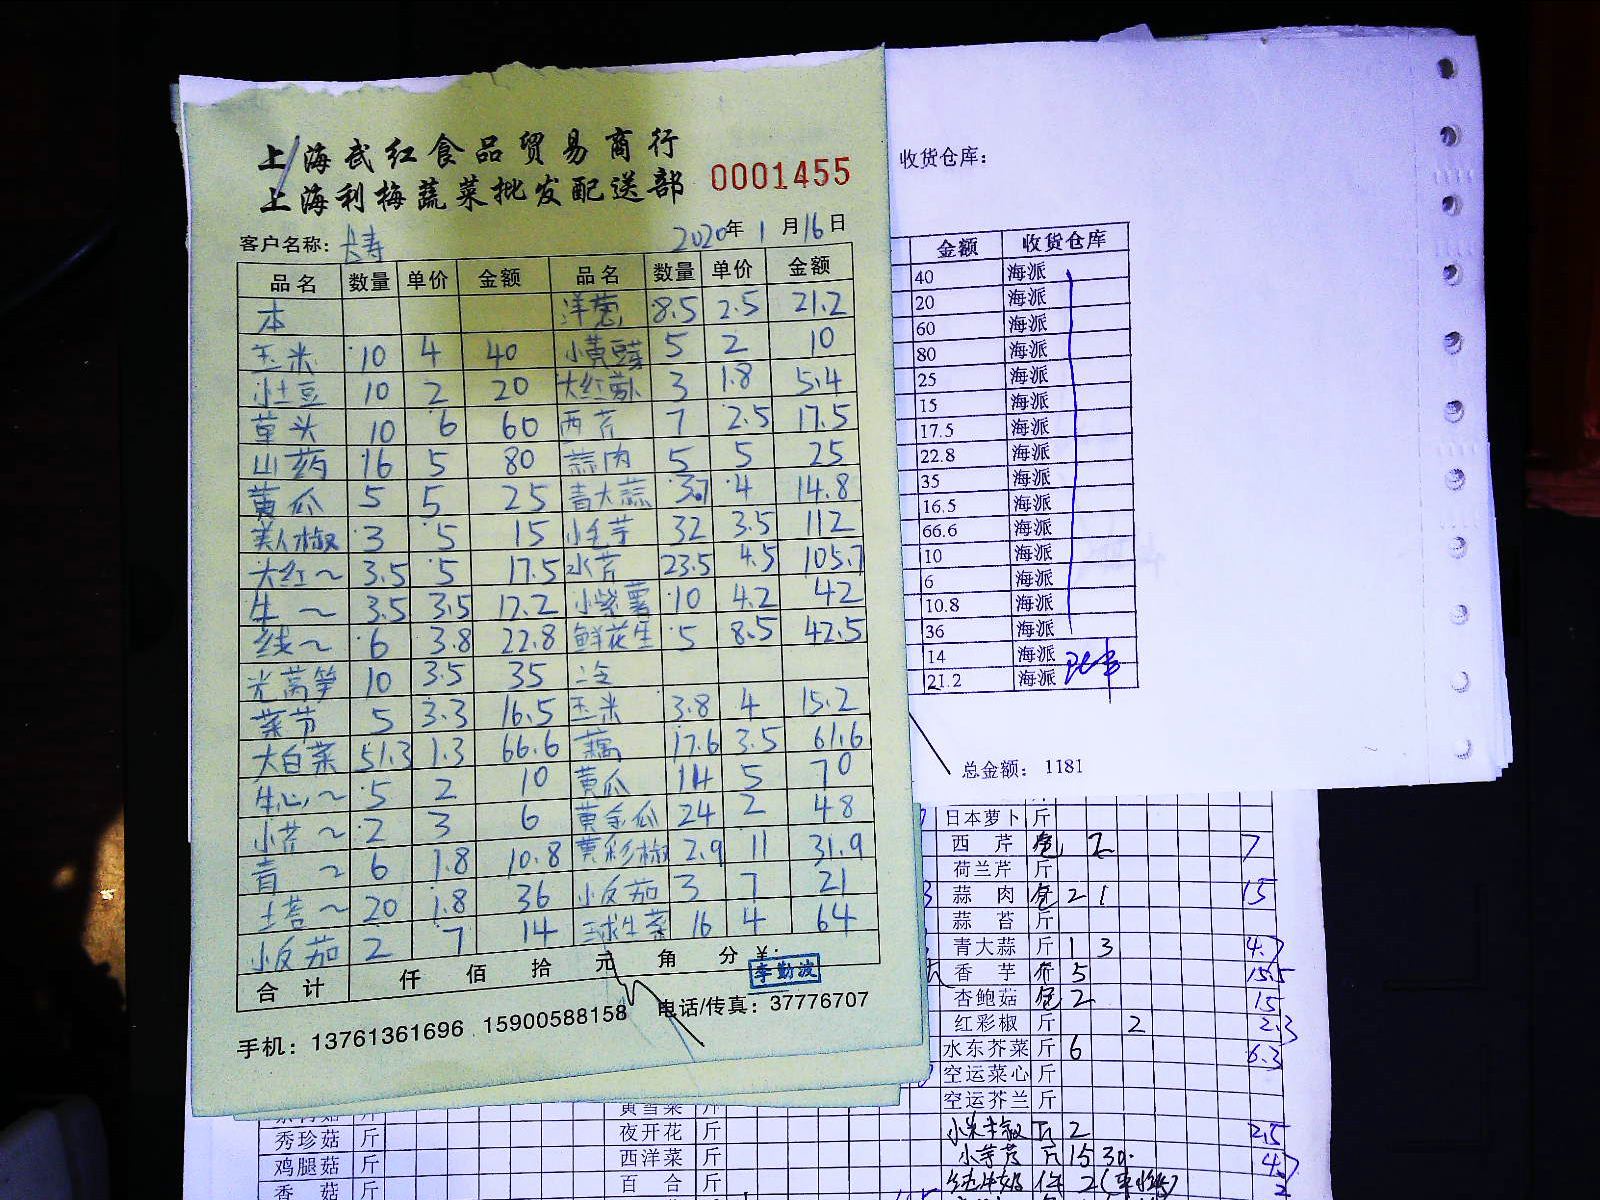 上海武红食品贸易商行
上海利梅蔬菜批发配送部 0001455
客户名称: 长寿 2020年 1月16日
品名 数量 单价 金额 品名 数量 单价 金额
本 洋葱 8.5 2.5 21.2
玉米 10 4 40 小黄豆芽 5 2 10
小土豆 10 2 20 大红萝卜 3 1.8 5.4
草头 10 6 60 西芹 7 2.5 17.5
山药 16 5 80 蒜肉 5 5 25
黄瓜 5 5 25 青大蒜 3.7 4 14.8
美人椒 3 5 15 小毛芋 32 3.5 112
大红~ 3.5 5 17.5 水芹 23.5 4.5 105.7
牛~ 3.5 3.5 12.2 小紫薯 10 4.2 42
线~ 6 3.8 22.8 鲜花生 5 8.5 42.5
光莴笋 10 3.5 35 冷
菜节 5 3.3 16.5 玉米 3.8 4 15.2
大白菜 51.3 1.3 66.6 藕 17.6 3.5 61.6
牛心~ 5 2 10 黄瓜 14 5 70
小芹~ 2 3 6 黄金瓜 24 2 48
青~ 6 1.8 10.8 黄彩椒 2.9 11 31.9
土塔~ 20 1.8 36 小反茄 3 7 21
小反茄 2 7 14 球生菜 16 4 64
合计 仟 佰 拾 元 角 分 ¥:
李勤波
手机: 13761361696 15900588158 电话/传真: 37776707
收货仓库:
金额 收货仓库
40 海派
20 海派
60 海派
80 海派
25 海派
15 海派
17.5 海派
22.8 海派
35 海派
16.5 海派
66.6 海派
10 海派
6 海派
10.8 海派
36 海派
14 海派
21.2 海派
总金额: 1181
日本萝卜 斤
西芹 包 2 7
荷兰芹 斤
蒜肉 包 2 1 15
蒜苔 斤
青大蒜 斤 1 3 4.7
香芋 斤 5 15.5
杏鲍菇 包 2 15
红彩椒 斤 2 2.3
水东芥菜 斤 6 6.3
空运菜心 斤
空运芥兰 斤
黄雪菜 斤
秀珍菇 斤 夜开花 斤 2 2.5
鸡腿菇 斤 西洋菜 斤 斤 15 30 4.7
香菇 斤 百合 斤